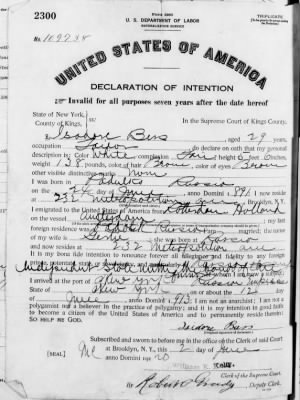 2300
Form 2203
U. S. DEPARTMENT OF LABOR
NATURALIZATION SERVICE
TRIPLICATE
No. 109738
UNITED STATES OF AMERICA
DECLARATION OF INTENTION
Invalid for all purposes seven years after the date hereof
State of New York,
County of Kings, ss:
In the Supreme Court of Kings County.
I, Isadore Bess, aged 29 years,
occupation Tailor, do declare on oath that my personal
description is: Color White, complexion Fair, height 5 feet inches,
weight 138 pounds, color of hair Brown, color of eyes Brown
other visible distinctive marks None
I was born in Russia
on the day of June, anno Domini 1891; I now reside
at 232 Metropolitan Brooklyn, N. Y.
I emigrated to the United States of America from Rotterdam Holland
on the vessel; my last
foreign residence was; I am married; the name
of my wife is; she was born at Russia
and now resides at 232 Metropolitan
It is my bona fide intention to renounce forever all allegiance and fidelity to any foreign
Independent State within the bounds of the
I arrived at the port of New York, in the
State of New York, on or about the 12 day
of June, anno Domini 1913; I am not an anarchist; I am not a
polygamist nor a believer in the practice of polygamy; and it is my intention in good faith
to become a citizen of the United States of America and to permanently reside therein:
SO HELP ME GOD.
Isidore Bess
Subscribed and sworn to before me in the office of the Clerk of said Court
[SEAL] at Brooklyn, N. Y., this 2 day of June
anno Domini 1920
Clerk of the Supreme Court.
Deputy Clerk.